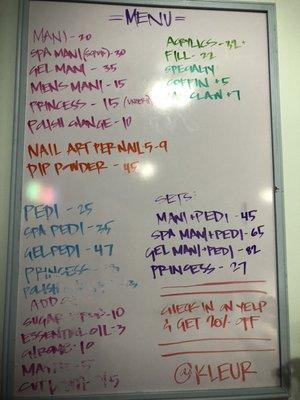 =MENU=
MANI - 20
SPA MANI - 30
GEL MANI - 35
MEN'S MANI - 15
PRINCESS - 15
POLISH CHANGE - 10
NAIL ART PER NAIL 5-9
DIP POWDER - 45
PEDI - 25
SPA PEDI - 35
GEL PEDI - 47
PRINCESS
POLISH
ADD
SUGAR - 10
ESSENTIAL OIL - 3
CHROME - 10
ACRYLICS - 32+
FILL - 22
SPECIALTY
COFFIN +5
CLAW +7
SETS:
MANI + PEDI - 45
SPA MANI + PEDI - 65
GEL MANI + PEDI - 82
PRINCESS - 27
CHECK IN ON YELP
& GET 20% OFF
@KLEUR